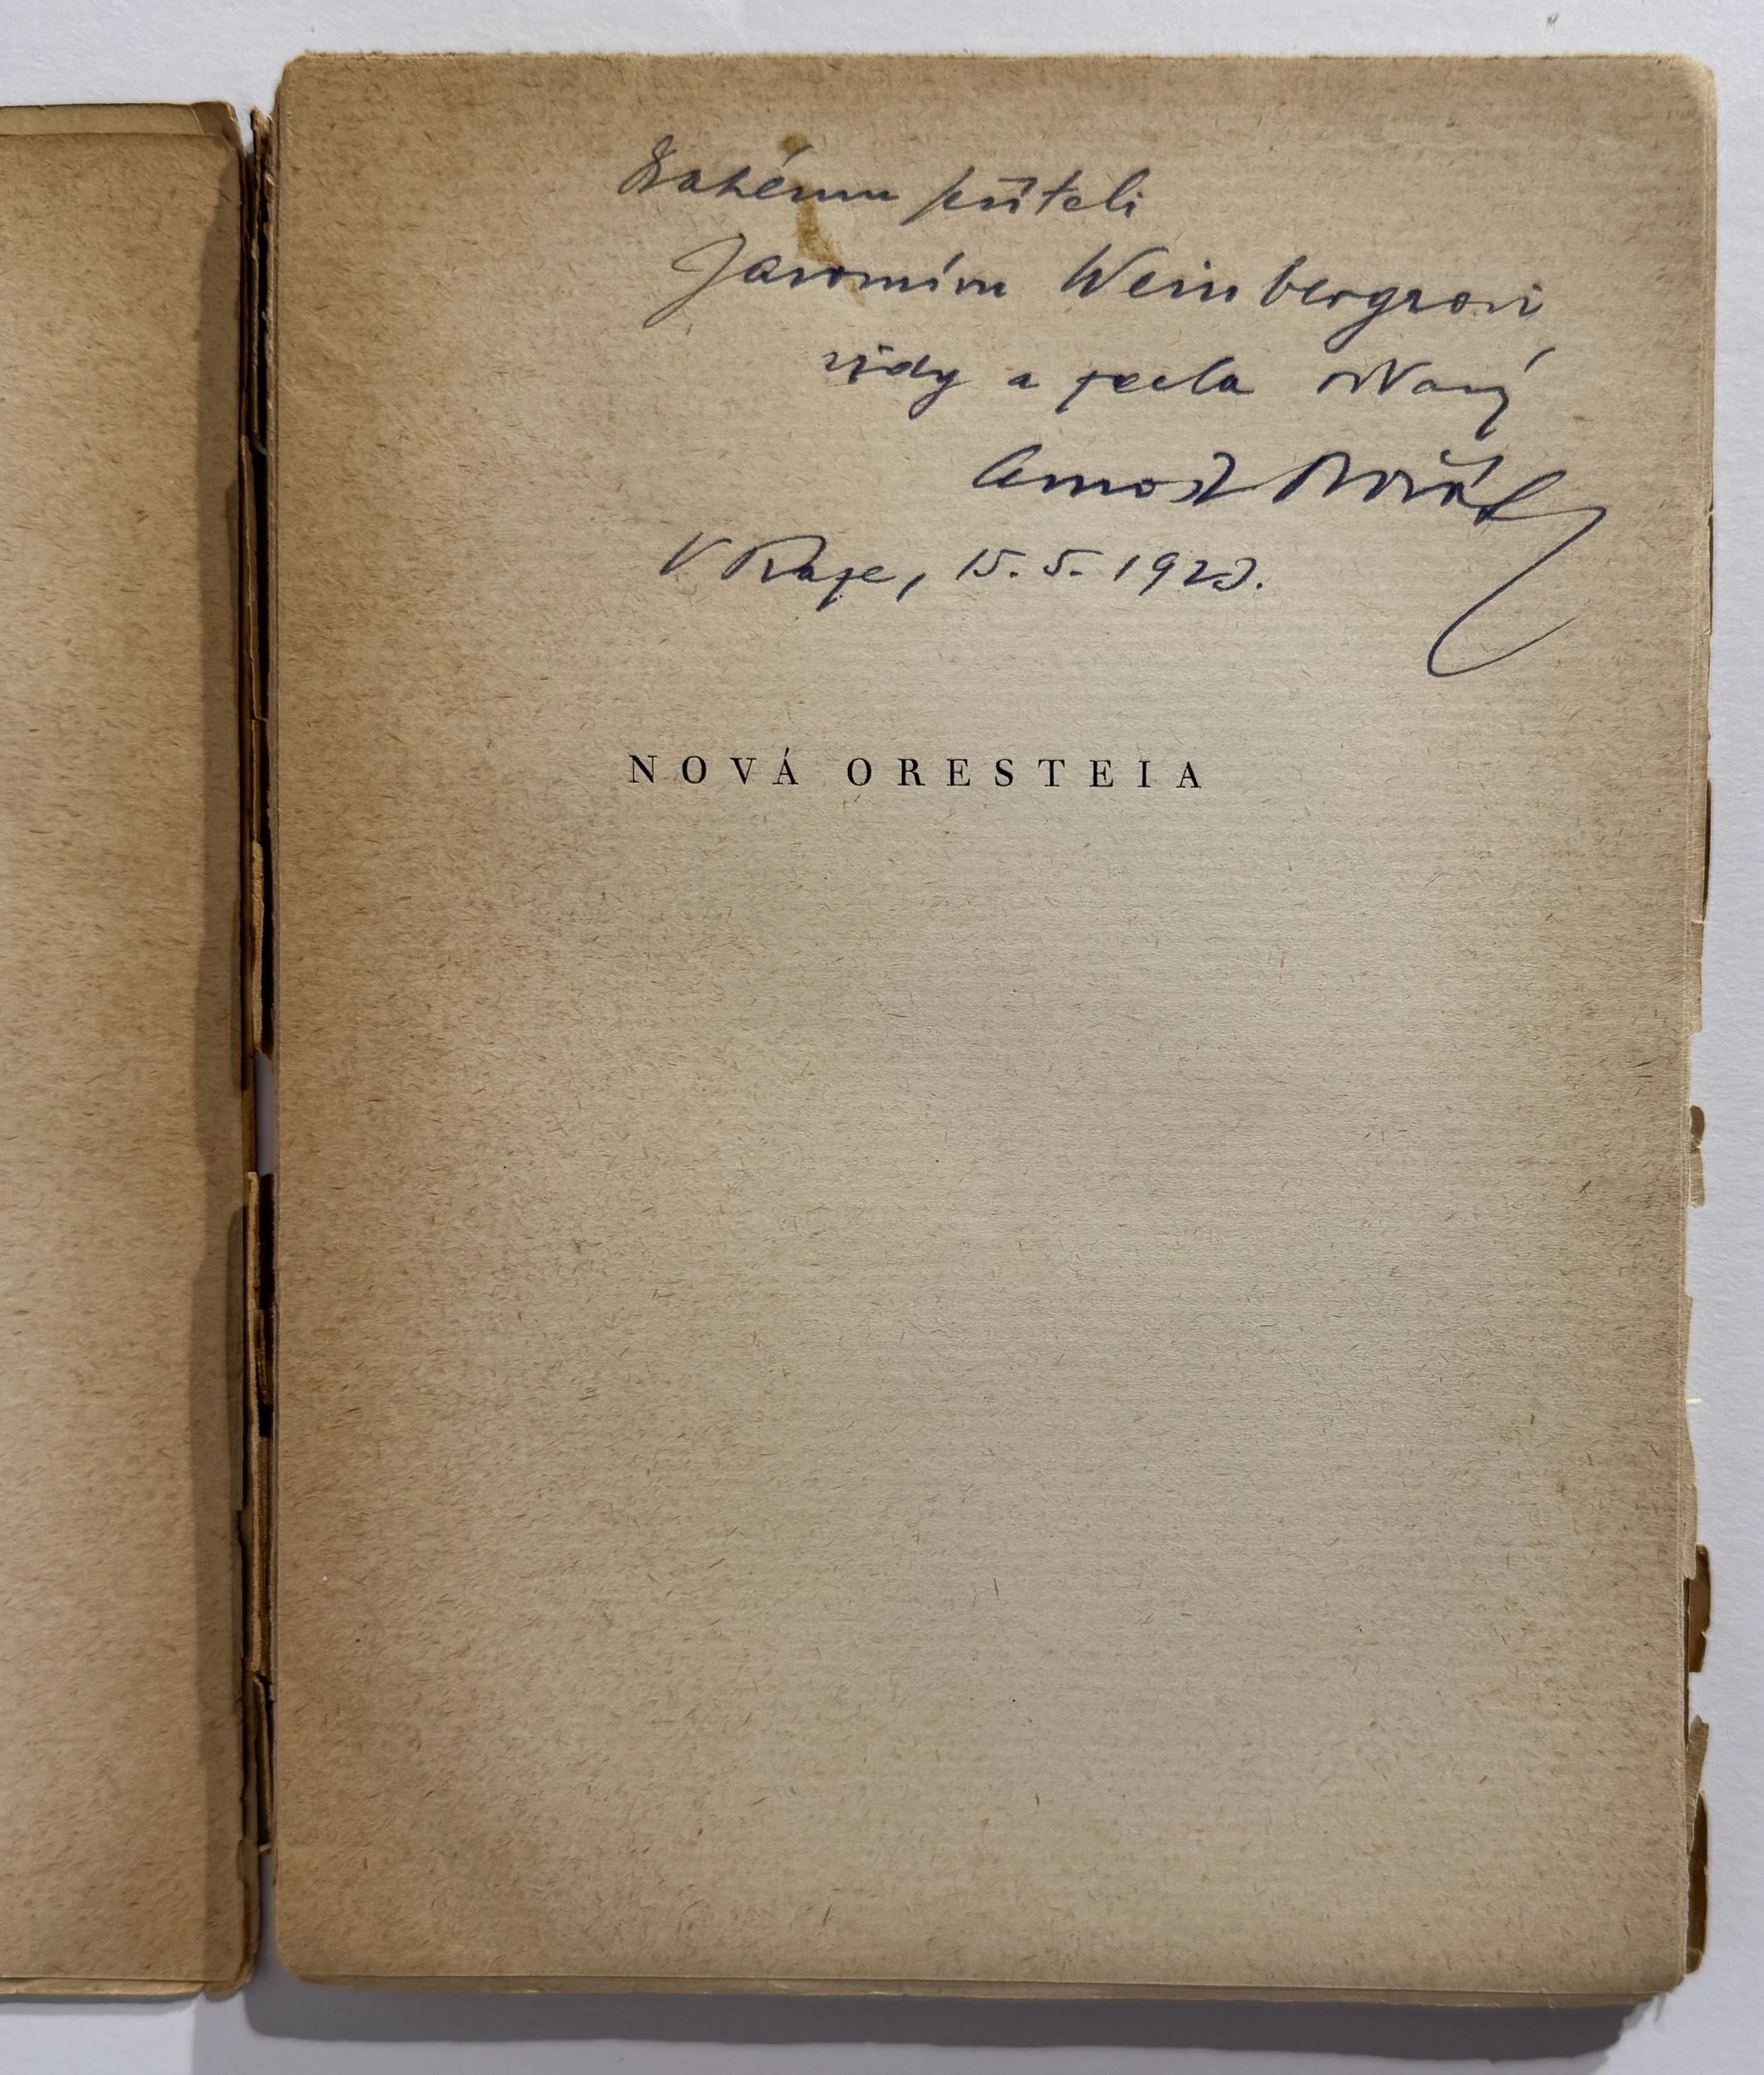 Drahému příteli
Jaromíru Weinbergrovi
vždy a zcela oddaný
Arnošt Dvořák
V Praze, 15. 5. 1923.
NOVÁ ORESTEIA